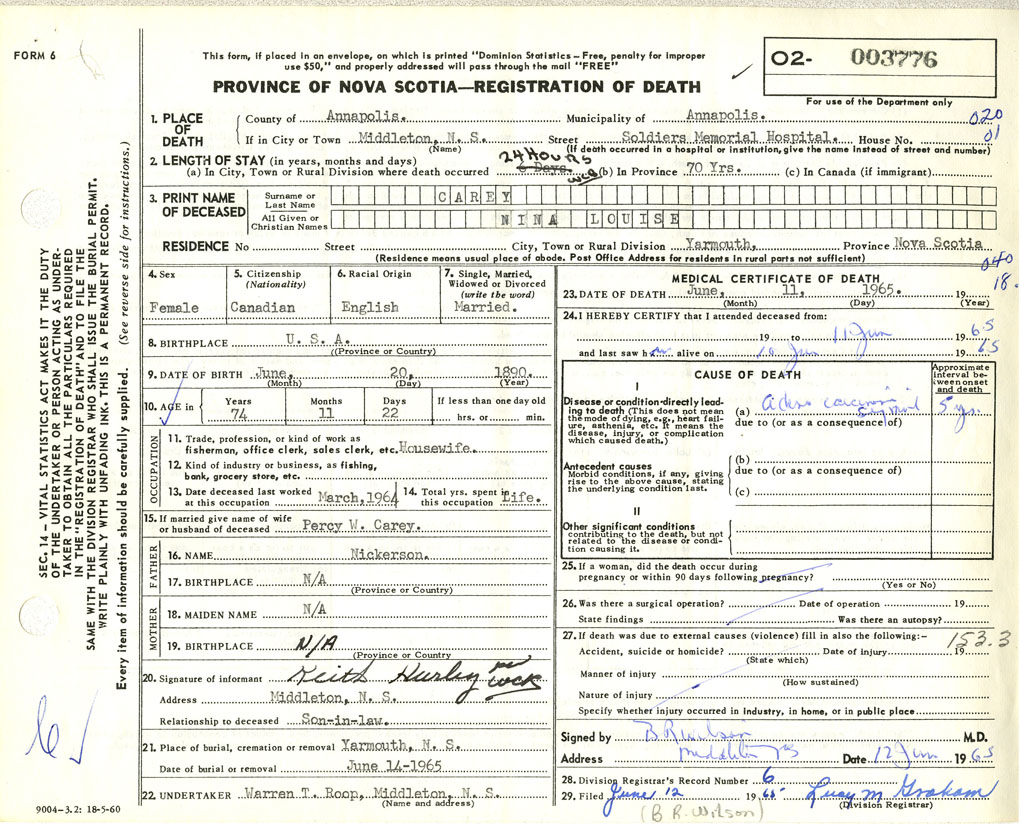 FORM 6
This form, if placed in an envelope, on which is printed "Dominion Statistics—Free, penalty for improper
use $50," and properly addressed will pass through the mail "FREE"
PROVINCE OF NOVA SCOTIA—REGISTRATION OF DEATH
O2- 003776
For use of the Department only
1. PLACE OF DEATH
County of Annapolis. Municipality of Annapolis. 020
If in City or Town Middleton, N. S. Street Soldiers Memorial Hospital. House No. 01
(Name) (If death occurred in a hospital or institution, give the name instead of street and number)
2. LENGTH OF STAY (in years, months and days) 24 HOURS
(a) In City, Town or Rural Division where death occurred 6 Days. (b) In Province 70 Yrs. (c) In Canada (if immigrant)
3. PRINT NAME OF DECEASED
Surname or Last Name CAREY
All Given or Christian Names NINA LOUISE
RESIDENCE No Street City, Town or Rural Division Yarmouth, Province Nova Scotia
(Residence means usual place of abode. Post Office Address for residents in rural parts not sufficient)
040
18.
4. Sex
Female
5. Citizenship
(Nationality)
Canadian
6. Racial Origin
English
7. Single, Married,
Widowed or Divorced
(write the word)
Married.
8. BIRTHPLACE U. S. A.
(Province or Country)
9. DATE OF BIRTH June, 20, 1890.
(Month) (Day) (Year)
10. AGE in Years Months Days If less than one day old
74 11 22 hrs. or min.
OCCUPATION
11. Trade, profession, or kind of work as
fisherman, office clerk, sales clerk, etc. Housewife.
12. Kind of industry or business, as fishing,
bank, grocery store, etc.
13. Date deceased last worked
at this occupation March, 1964
14. Total yrs. spent in
this occupation Life.
15. If married give name of wife
or husband of deceased Percy W. Carey.
FATHER
16. NAME Nickerson.
17. BIRTHPLACE N/A
(Province or Country)
MOTHER
18. MAIDEN NAME N/A
19. BIRTHPLACE N/A
(Province or Country
20. Signature of informant Keith Hurley
Address Middleton, N. S.
Relationship to deceased Son-in-law.
21. Place of burial, cremation or removal Yarmouth, N. S.
Date of burial or removal June 14-1965
22 UNDERTAKER Warren T. Roop, Middleton, N. S.
(Name and address)
MEDICAL CERTIFICATE OF DEATH
23. DATE OF DEATH June, 11, 1965. 19
(Month) (Day) (Year)
24. I HEREBY CERTIFY that I attended deceased from:
19 to 11 Jun 1965
and last saw h alive on Jun 1965
CAUSE OF DEATH
Approximate
interval be-
tween onset
and death
I
Disease or condition directly lead-
ing to death (This does not mean
the mode of dying, e.g., heart fail-
ure, asthenia, etc. It means the
disease, injury, or complication
which caused death.)
(a) Adeno carcinoma Sigmoid 5 yrs.
due to (or as a consequence of)
Antecedent causes
Morbid conditions, if any, giving
rise to the above cause, stating
the underlying condition last.
(b)
due to (or as a consequence of)
(c)
II
Other significant conditions
contributing to the death, but not
related to the disease or condi-
tion causing it.
25. If a woman, did the death occur during
pregnancy or within 90 days following pregnancy?
(Yes or No)
26. Was there a surgical operation? Date of operation 19
State findings Was there an autopsy?
27. If death was due to external causes (violence) fill in also the following:— 153.3
Accident, suicide or homicide? Date of injury 19
(State which)
Manner of injury
(How sustained)
Nature of injury
Specify whether injury occurred in industry, in home, or in public place
Signed by B R Wilson M.D.
Address Middleton NS Date 12 Jun 1965
28. Division Registrar's Record Number 6
29. Filed June 12 1965 Lucy M Graham
(Division Registrar)
(B R. Wilson)
SEC. 14 — VITAL STATISTICS ACT MAKES IT THE DUTY
OF THE UNDERTAKER OR PERSON ACTING AS UNDER-
TAKER TO OBTAIN ALL THE PARTICULARS REQUIRED
IN THE "REGISTRATION OF DEATH" AND TO FILE THE
SAME WITH THE DIVISION REGISTRAR WHO SHALL ISSUE THE BURIAL PERMIT.
WRITE PLAINLY WITH UNFADING INK. THIS IS A PERMANENT RECORD.
Every item of information should be carefully supplied. (See reverse side for instructions.)
9004-3.2: 18-5-60